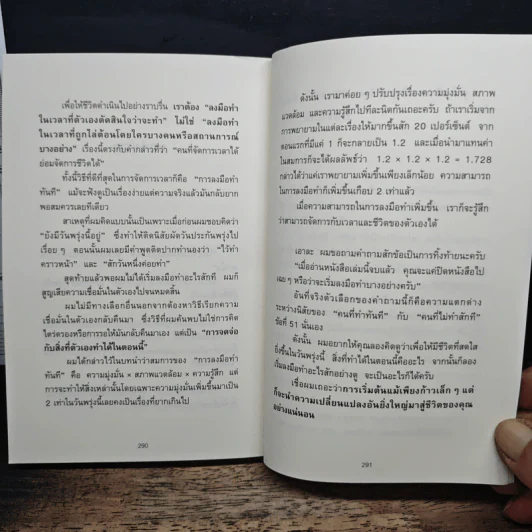 เพื่อให้ชีวิตดำเนินไปอย่างราบรื่น เราต้อง “ลงมือทำ
ในเวลาที่ตัวเองตัดสินใจว่าจะทำ” ไม่ใช่ “ลงมือทำ
ในเวลาที่ถูกไล่ต้อนโดยใครบางคนหรือสถานการณ์
บางอย่าง” เรื่องนี้ตรงกับคำกล่าวที่ว่า “คนที่จัดการเวลาได้
ย่อมจัดการชีวิตได้”
ทั้งนี้วิธีที่ดีที่สุดในการจัดการเวลาก็คือ “การลงมือทำ
ทันที” แม้จะฟังดูเป็นเรื่องง่ายแต่ความจริงแล้วมันกลับยาก
พอสมควรเลยทีเดียว
สาเหตุที่ผมคิดแบบนั้นเป็นเพราะเมื่อก่อนผมชอบคิดว่า
“ยังมีวันพรุ่งนี้อยู่” ซึ่งทำให้ติดนิสัยผัดวันประกันพรุ่งไป
เรื่อย ๆ ตอนนั้นผมเลยมีคำพูดติดปากทำนองว่า “ไว้ทำ
คราวหน้า” และ “สักวันหนึ่งค่อยทำ”
สุดท้ายแล้วพอผมไม่ได้เริ่มลงมือทำอะไรสักที ผมก็
สูญเสียความเชื่อมั่นในตัวเองไปจนหมดสิ้น
ผมไม่มีทางเลือกอื่นนอกจากต้องหาวิธีเรียกความ
เชื่อมั่นในตัวเองกลับคืนมา ซึ่งวิธีที่ผมค้นพบไม่ใช่การคิด
ใคร่ตรองหรือการรอให้มันกลับคืนมาเอง แต่เป็น “การจดจ่อ
กับสิ่งที่ตัวเองทำได้ในตอนนี้”
ผมได้กล่าวไว้ในบทนำว่าสมการของ “การลงมือทำ
ทันที” คือ ความมุ่งมั่น × สภาพแวดล้อม × ความรู้สึก แต่
การจะทำให้สิ่งเหล่านั้นโดยเฉพาะความมุ่งมั่นเพิ่มขึ้นมาเป็น
2 เท่าในวันพรุ่งนี้เลยคงเป็นเรื่องที่ยากเกินไป
290
ดังนั้น เรามาค่อย ๆ ปรับปรุงเรื่องความมุ่งมั่น สภาพ
แวดล้อม และความรู้สึกไปทีละนิดกันเถอะครับ ถ้าเราเริ่มจาก
การพยายามในแต่ละเรื่องให้มากขึ้นสัก 20 เปอร์เซ็นต์ จาก
ตอนแรกที่มีแค่ 1 ก็จะกลายเป็น 1.2 และเมื่อนำมาแทนค่า
ในสมการก็จะได้ผลลัพธ์ว่า 1.2 × 1.2 × 1.2 = 1.728
กล่าวได้ว่าแค่เราพยายามเพิ่มขึ้นเพียงเล็กน้อย ความสามารถ
ในการลงมือทำก็เพิ่มขึ้นเกือบ 2 เท่าแล้ว
เมื่อความสามารถในการลงมือทำเพิ่มขึ้น เราก็จะรู้สึก
ว่าสามารถจัดการกับเวลาและชีวิตของตัวเองได้
เอาละ ผมขอถามคำถามสักข้อเป็นการทิ้งท้ายนะครับ
“เมื่ออ่านหนังสือเล่มนี้จบแล้ว คุณจะแค่ปิดหนังสือไป
เฉย ๆ หรือว่าจะเริ่มลงมือทำบางอย่างครับ”
อันที่จริงตัวเลือกของคำถามนี้ก็คือความแตกต่าง
ระหว่างนิสัยของ “คนที่ทำทันที” กับ “คนที่ไม่ทำสักที”
ข้อที่ 51 นั่นเอง
ดังนั้น ผมอยากให้คุณลองคิดดูว่าเพื่อให้มีชีวิตที่สดใส
ยิ่งขึ้นในวันพรุ่งนี้ สิ่งที่ทำได้ในตอนนี้คืออะไร จากนั้นก็ลอง
เริ่มลงมือทำอะไรสักอย่างดู จะเป็นอะไรก็ได้ครับ
เชื่อผมเถอะว่าการเริ่มต้นแม้เพียงก้าวเล็ก ๆ แต่
ก็จะนำความเปลี่ยนแปลงอันยิ่งใหญ่มาสู่ชีวิตของคุณ
อย่างแน่นอน
291